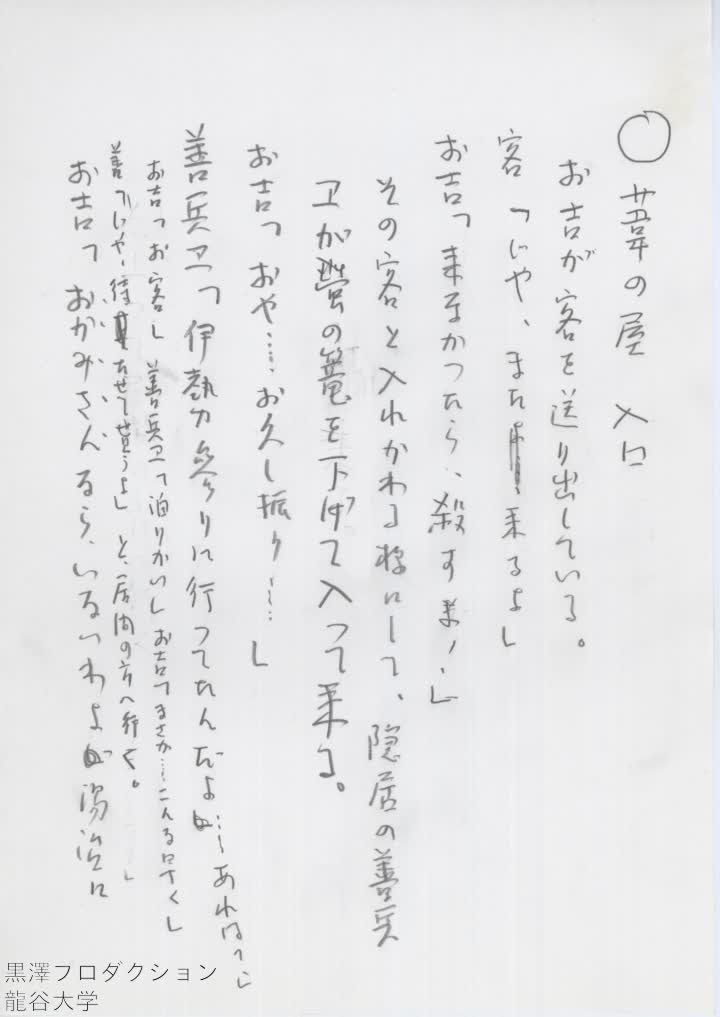 ○ 葦の屋 入口
お吉が客を送り出している。
客「じや、また来るよ」
お吉「来なかつたら、殺すよ」
その客と入れかわる様にして、隠居の善兵
ヱが螢の篭を下げて入って来る。
お吉「おや……お久し振り……」
善兵ヱ「伊勢詣りに行つてたんだよ……あれは?」
お吉「お客」善兵ヱ「泊りかい」お吉「まさか…こんな早く」
善「じや、待たせて貰うよ」と、居間の方へ行く。
お吉「おかみさんなら、いないわよ 湯治に
黒澤プロダクション
龍谷大学